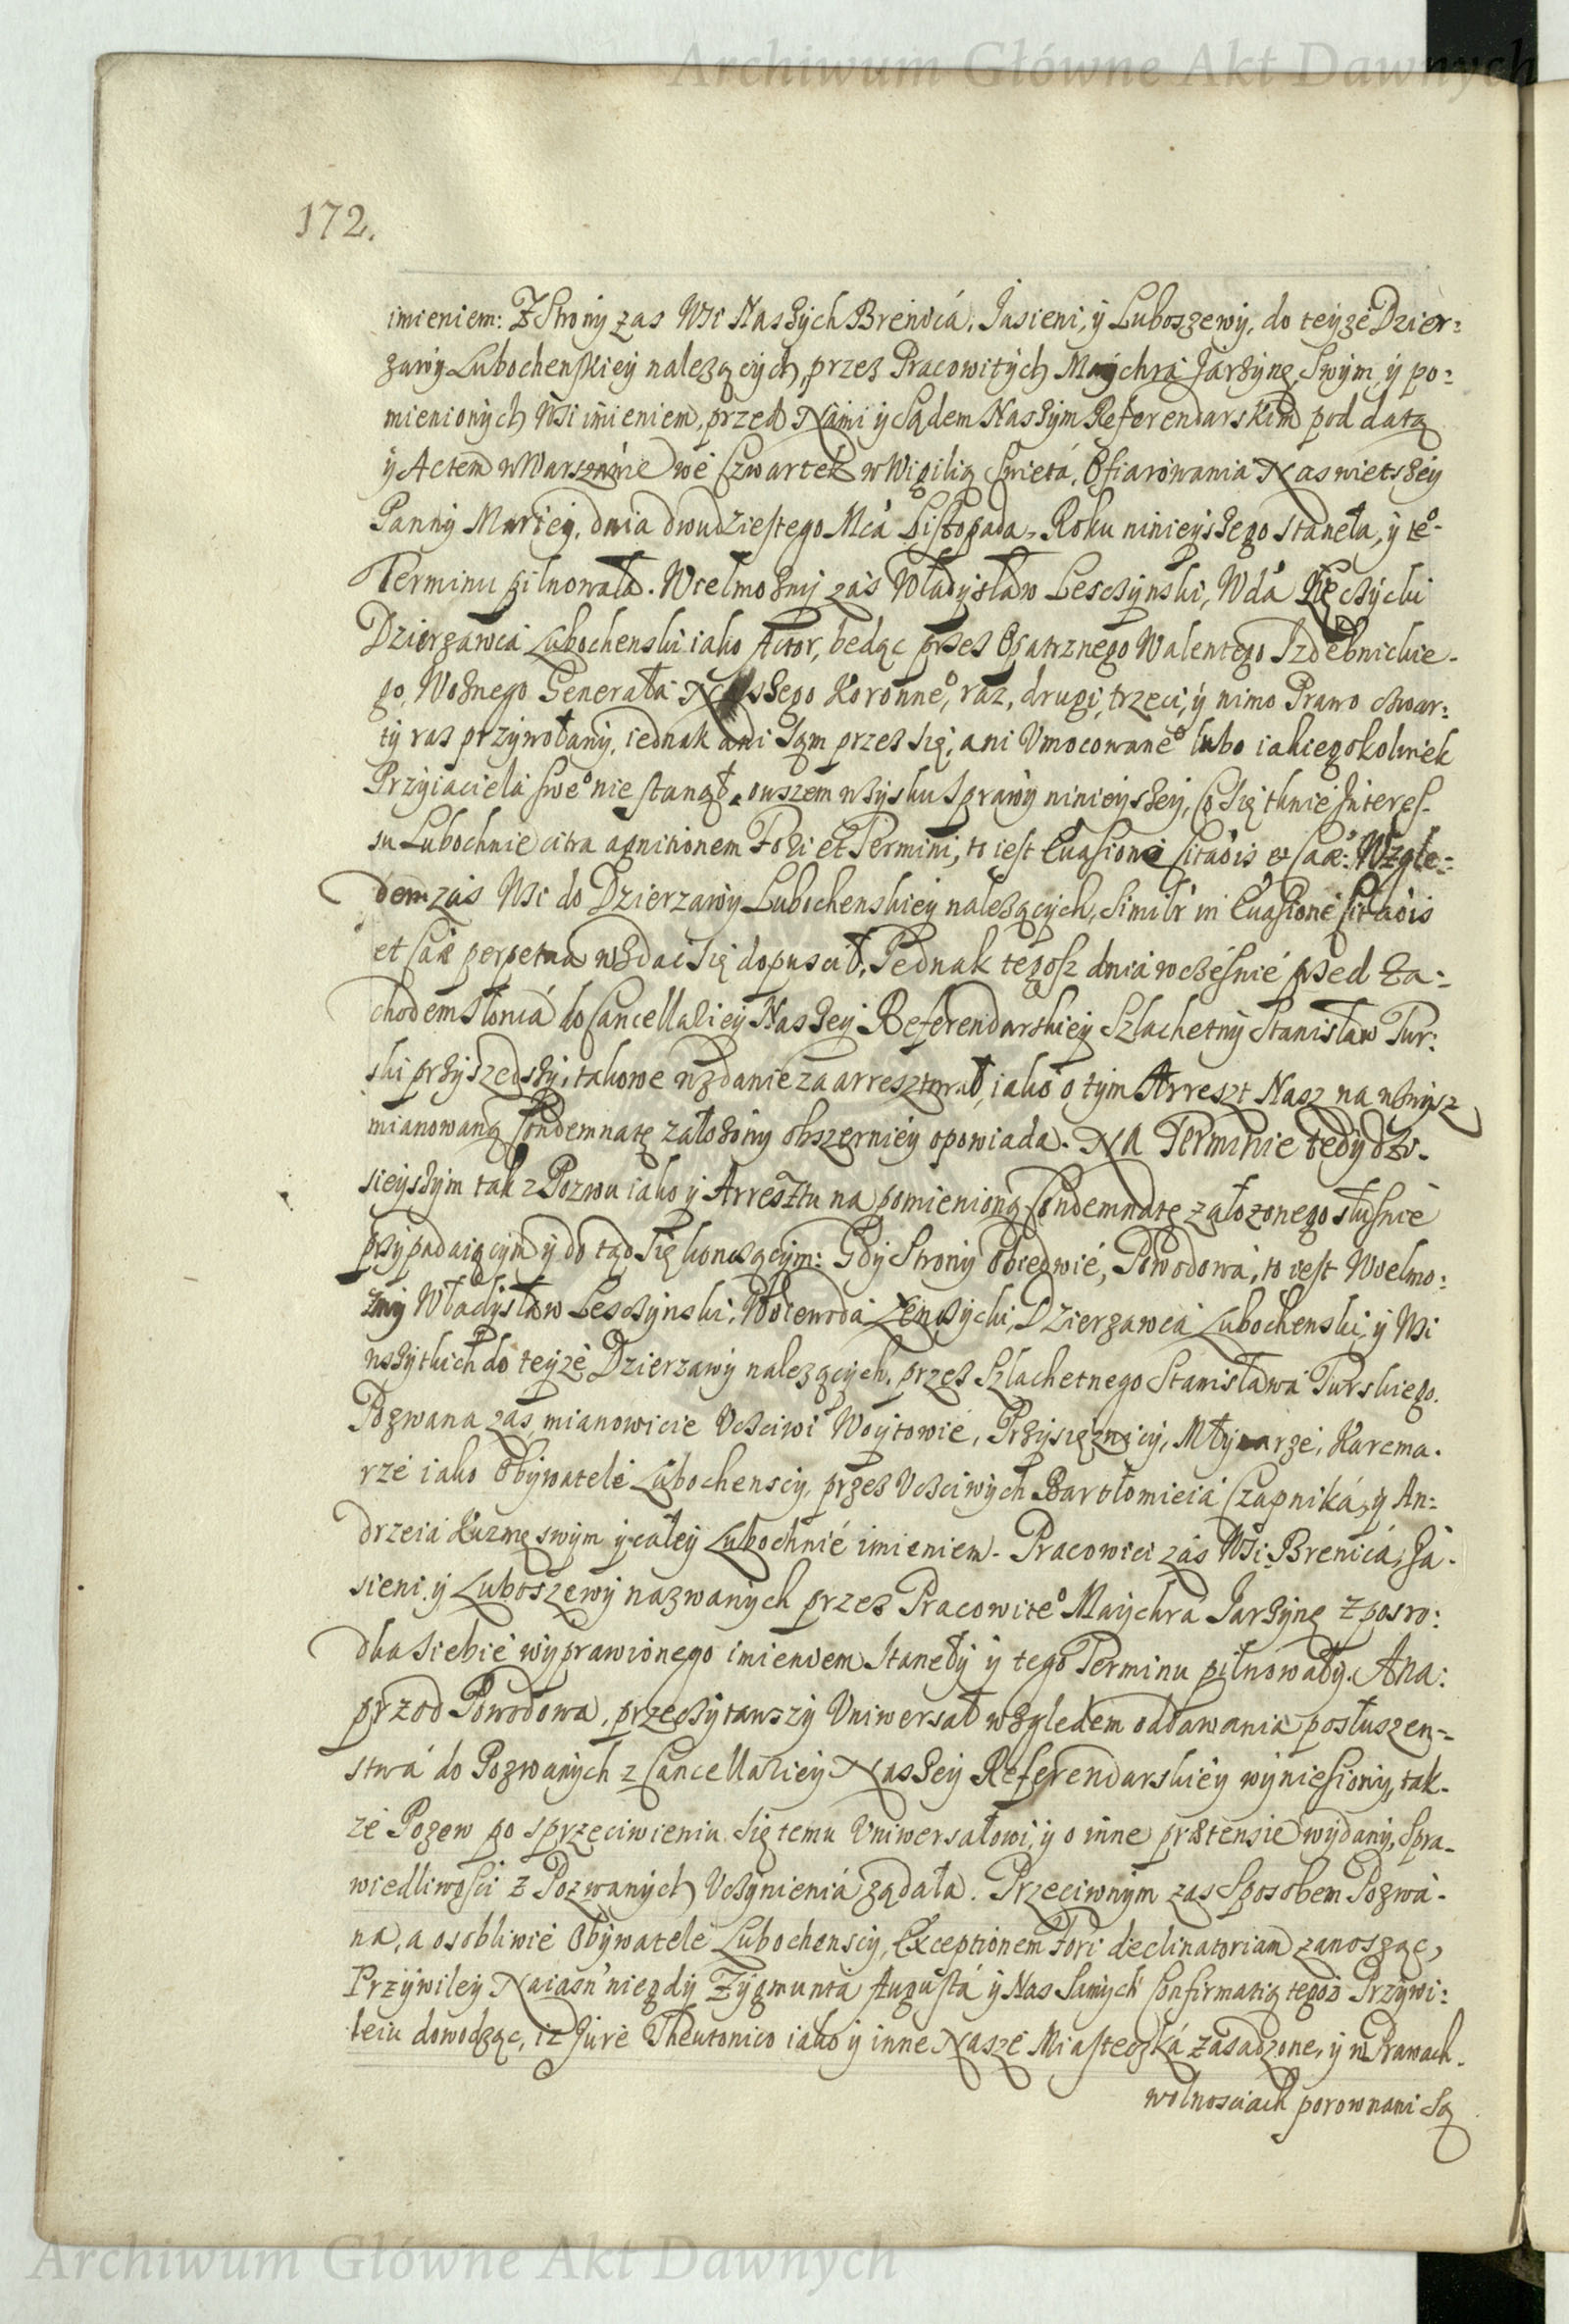 Archiwum Główne Akt Dawnych
172.
imieniem: Z Strony zas Wsi Naszych Brenicá, Jasieni, y Luboszewy, do teyze Dzier:
zawy Lubochenskiey nalezących, przez Pracowitych Maychra Jarzynę, Swym, y po:
mienionych Wsi imieniem, przed Nami y Sądem Naszym Referendarskim pod datą
y Actem w Warszawie we Czwartek w Wigilią Swietá, Ofiarowania Naswietszey
Panny Mariey, dnia dwudziestego Mcá Listopada, Roku ninieyszego stanęła, y teo
Terminu pilnowała. Wielmozny zás Władysław Lesczynski, Wdá Łęczycki
Dzierzawca Lubochenski iako Actor, będąc przez Opatrznego Walentego Izdebnickie-
go, Woznego Generała Naszego Koronneo, raz, drugi, trzeci, y nimo Prawo czwar:
ty raz przywołany, iednak ani Sąm przez Się, ani Umocowaneo lubo iakiegokolwiek
Przyiacielá Sweo nie stanął, owszem w Zysku Sprawy ninieyszey, Co Się tknie Interes-
su Lubochnie citra agnitionem Fori et Termini, to iest Euasione Citaois et Caae: Wzglę:
dem zás Wsi do Dzierzawy Lubochenskiey nalezących, Similr in Euasione Citaois
et Caae perpetua wzdac Się dopuscił. Jednak tegosz dnia wczesnie przed Za:
chodem Słoncá do Cancellariey Naszey Referendarskiey Szlachetny Stanisław Tur:
ski przyszedszy, takowe wzdanie zaarresztował, iako o tym Arreszt Nasz na wzwysz
mianowaną Condemnatę załozony obszerniey opowiada. Na Terminie tedy dzi-
sieyszym tak z Pozwu iako y Arresztu na pomienioną Condemnatę załozonego słusnie
przypadaiącym y do tąd Się konczącym: Gdy Strony Obiedwie, Powodowa, to iest Woelmo:
zny Władysław Lesczynski, Woiewoda Łenczycki, Dzierzawca Lubochenski, y Wsi
wszytkich do teyze Dzierzawy nalezących, przez Szlachetnego Stanisława Turskiego.
Pozwana zás, mianowicie Uczciwi Woytowie, Przysięznicy, Młynarze, Karcma-
rze iako Obywatele Lubochenscy, przez Uczciwych Bartłomieia Czapniká, y An:
drzeia Kuzmę swym y całey Lubochnié imieniem. Pracowici zás Wsi Brenicá, Ja-
sieni, y Luboszewy nazwanych przez Pracowiteo Maychra Jarzynę z posro:
dka Siebie wyprawionego imieniem Stanęły y tego Terminu pilnowały. A na:
przod Powodowa, przeczytawszy Uniwersał względem oddawania posłuszen-
stwá do Pozwanych z Cancellariey Naszey Referendarskiey wyniesiony, tak-
ze Pozew po sprzeciwieniu Się temu Uniwersałowi, y o inne praetensie wydany, Spra-
wiedliwosci z Pozwanych Uczynienia ządała. Przeciwnym zas Sposobem Pozwá-
na, a osobliwie Obywatele Lubochenscy, Exceptionem Fori declinatoriam zanosząc,
Przywiley Naiasn' niegdy Zygmunta Augustá y Nas Samych Confirmatią tegoż Przywi:
leiu dowodząc, iz Jure Theutonico iako y inne Nasze Miasteczká zasadzone, y w Prawach.
wolnosciach porownani Są
Archiwum Główne Akt Dawnych